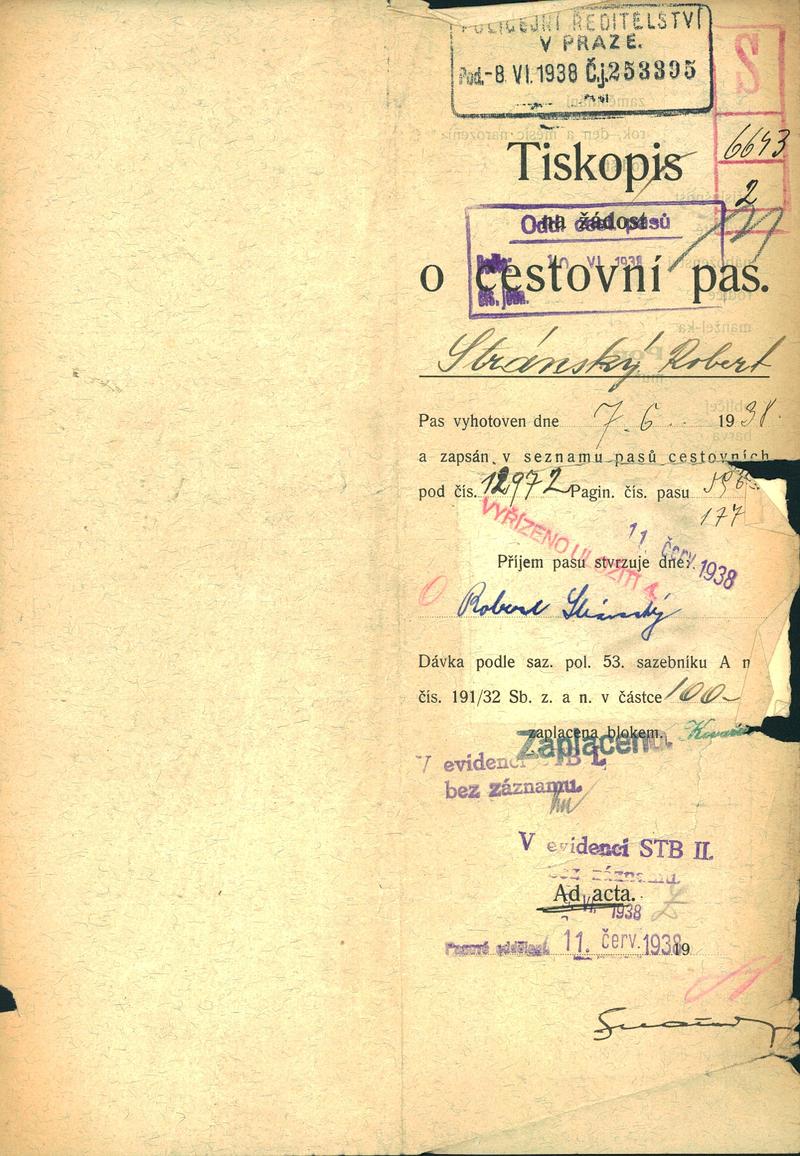 POLICEJNÍ ŘEDITELSTVÍ
V PRAZE.
Pod.-8 VI.1938 Č.j.253395
S
6643
2
Tiskopis
na žádost
Odd. cest. pasů
10 VI 1938
o cestovní pas.
Stránský Robert
Pas vyhotoven dne 7. 6. 1938.
a zapsán v seznamu pasů cestovních
pod čís. 12972 Pagin. čís. pasu
177
VYŘÍZENO ULOŽITI
11 červ. 1938
Příjem pasu stvrzuje dne:
Robert Stránský
Dávka podle saz. pol. 53. sazebníku A
čís. 191/32 Sb. z. a n. v částce 100-
zaplacena blokem.
Zaplaceno.
V evidenci STB I.
bez záznamu.
V evidenci STB II.
bez záznamu.
Ad acta.
VI. 1938
Pasové oddělení 11. červ. 1938 19